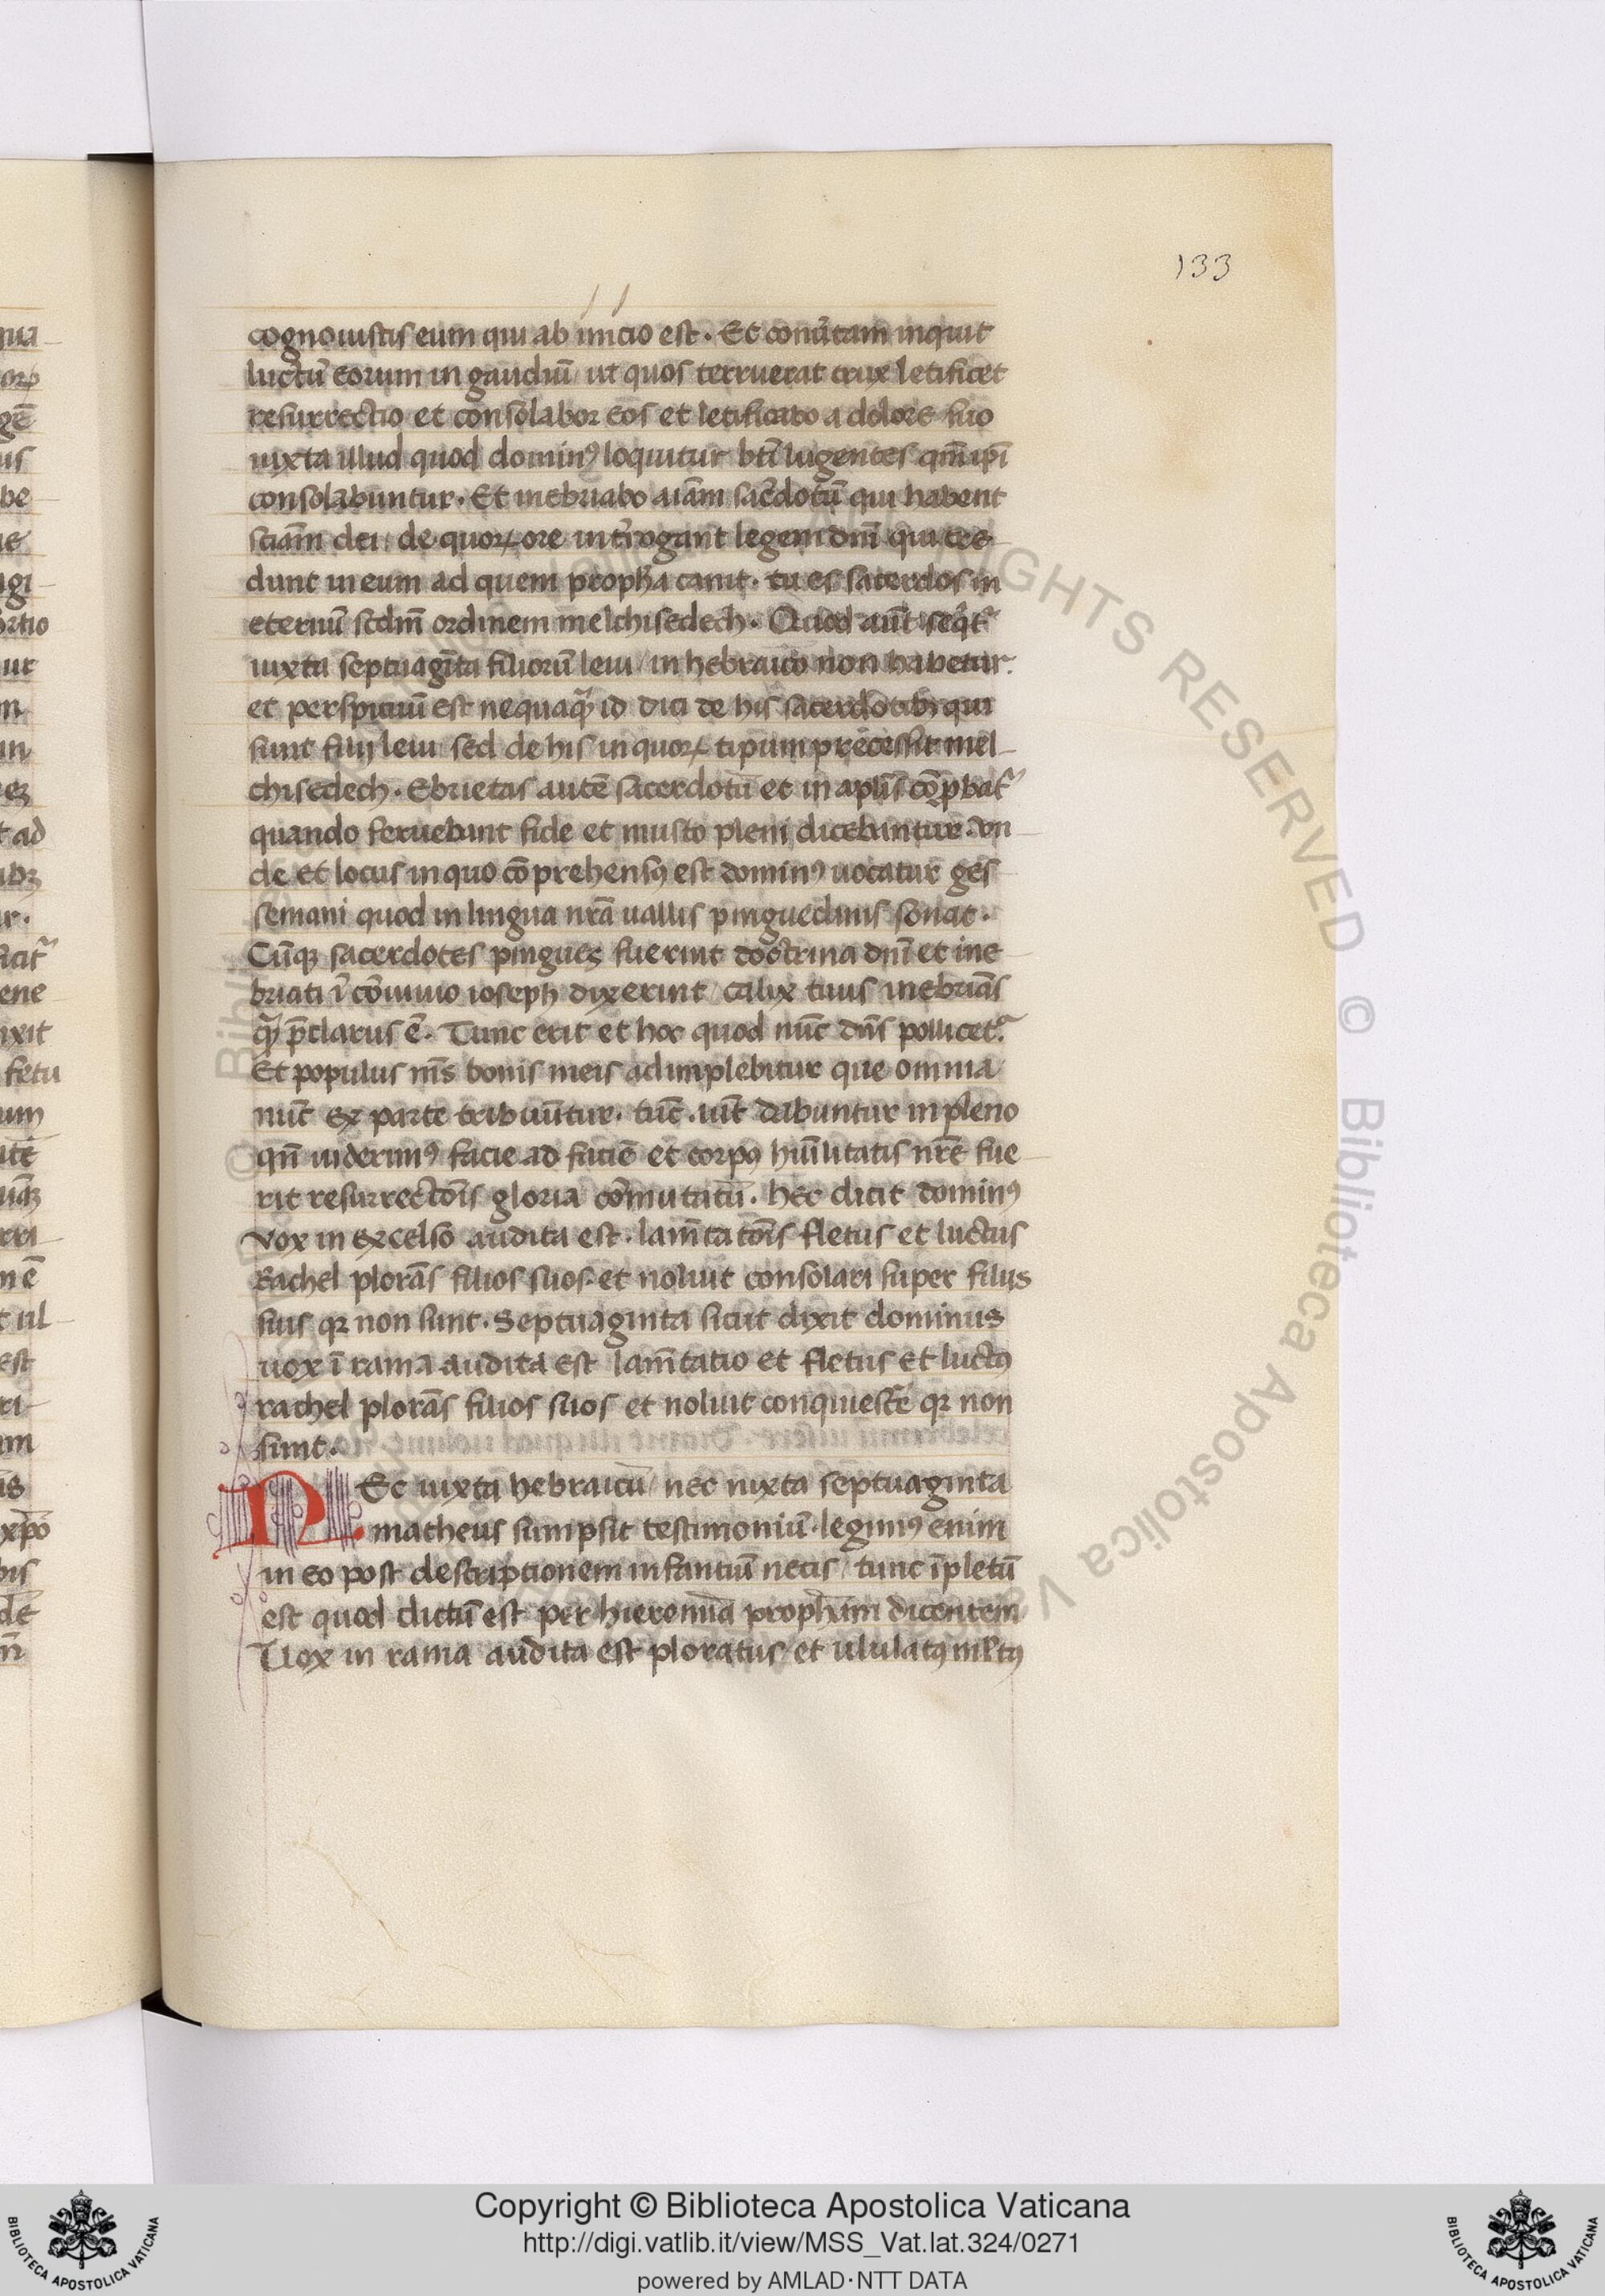 133
cognouistis eum qui ab inicio est. Et conũtam inquit
luctũ eorum in gaudiũ / ut quos terruerat crux letificet
resurrectio et consolabor eos et letificabo a dolore suo
iuxta illud quod dominꝰ loquitur bt̃i lugentes qm̃ ip̃i
consolabuntur. Et inebriabo aĩam sac̃dotũ qui habent
sciam̃ dei / de quoꝝ ore int̃rogant legem dnĩ qui cre
dunt in eum ad quem proph̃a canit. tu es sacerdos in
eternũ scdm̃ ordinem melchisedech. Quod aũt seqt̃
iuxta septuagĩta filiorũ leui / in hebraico non habetur.
et perspicuũ est nequaq̃ id dici de his sacerdotibꝫ qui
sunt filij leui sed de his in quoꝝ tipum precessit mel
chisedech. Ebrietas autẽ sacerdotũ et in aplĩs cõꝓbat̃
quando feruebant fide et musto pleni dicebantur. vn
de et locus in quo cõprehensꝰ est dominꝰ uocatur ges
semani quod in lingua nrã uallis pinguedinis sonat.
Cũqꝫ sacerdotes pingues fuerint doctrina dnĩ et ine
briati ĩ cõuiuio ioseph dixerint / calix tuus inebriãs
q̃ p̃clarus ẽ. Tunc erit et hoc quod nũc dñs pollicet̃.
Et populus mẽs bonis meis adimplebitur que omnia
nũc ex parte tribuũtur. tũc ũt dabuntur in pleno
qñ uiderimꝰ facie ad faciẽ et corpꝰ hũilitatis nrẽ fue
rit resurrectõis gloria cõmutatũ. hec dicit dominꝰ
vox in excelso audita est. lam̃tatõis fletus et luctus
Rachel plorãs filios suos et noluit consolari super filiis
suis qꝛ non sunt. Septuaginta sicut dixit dominus
uox ĩ rama audita est lam̃tatio et fletus et luctꝰ
rachel plorãs filios suos et noluit conquiescẽ qꝛ non
sunt.
NEc iuxta hebraicũ / nec iuxta septuaginta
matheus sumpsit testimoniũ. legimꝰ enim
in eo post descriptionem infantiũ necis / tunc ĩpletũ
est quod dictũ est per hieremiã proph̃am dicentem
Uox in rama audita est ploratus / et ululatꝰ mltꝰ
© Biblioteca Apostolica Vaticana
RIGHTS RESERVED
Copyright © Biblioteca Apostolica Vaticana
http://digi.vatlib.it/view/MSS_Vat.lat.324/0271
powered by AMLAD·NTT DATA
BIBLIOTECA APOSTOLICA VATICANA
BIBLIOTECA APOSTOLICA VATICANA